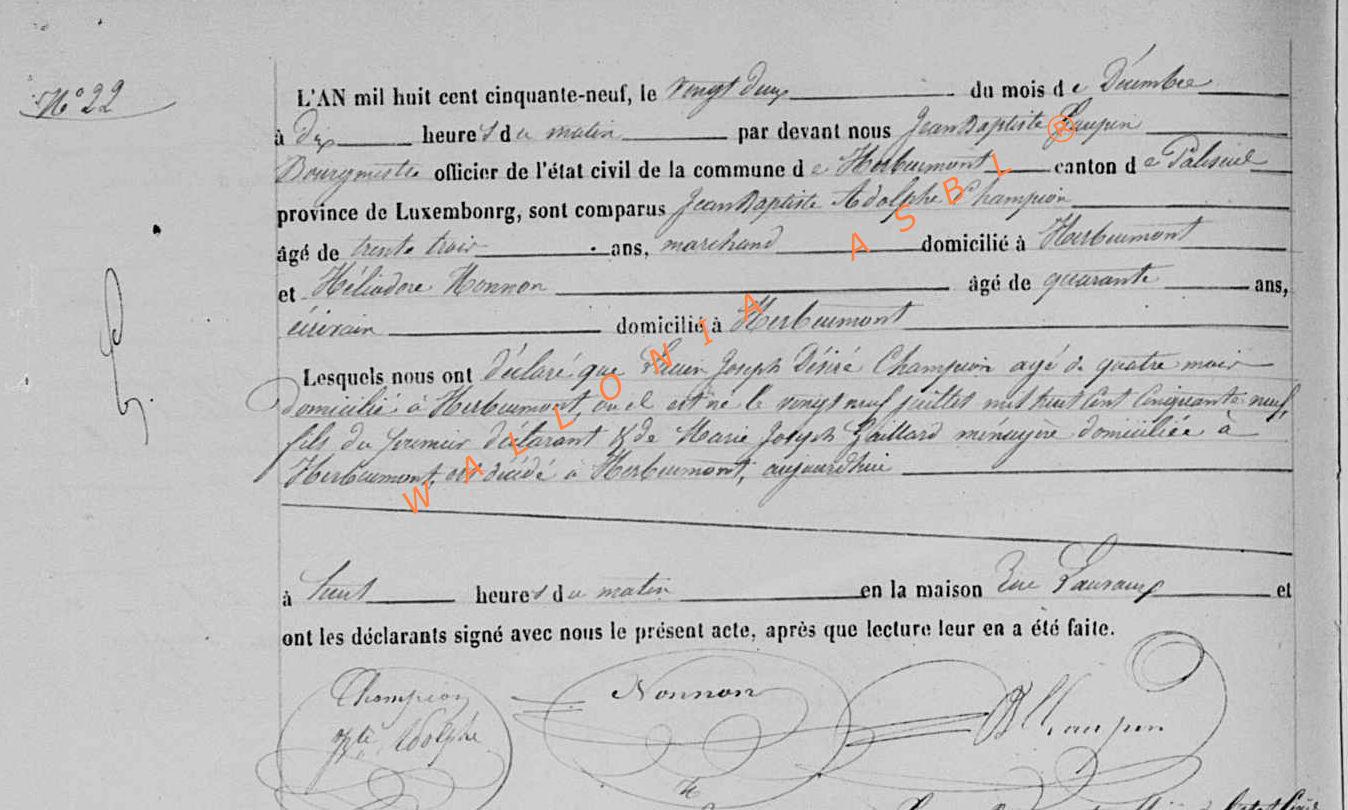 N° 22
L'AN mil huit cent cinquante-neuf, le vingt deux du mois de Décembre
à dix heures du matin par devant nous Jean Baptiste Laupin
Bourgmestre officier de l'état civil de la commune de Herbeumont canton de Paliseul
province de Luxembonrg, sont comparus Jean Baptiste Adolphe Champion
âgé de trente trois ans, marchand domicilié à Herbeumont
et Héliodore Nonnon âgé de quarante ans,
écrivain domicilié à Herbeumont
Lesquels nous ont déclaré que Lucien Joseph Désiré Champion agé de quatre mois
domicilié à Herbeumont, où il est né le vingt neuf juillet mil huit cent cinquante neuf,
fils du premier déclarant & de Marie Joseph Gaillard ménagère domiciliée à
Herbeumont, est décédé à Herbeumont, aujourdhui
à heures du matin en la maison Rue et
ont les déclarants signé avec nous le présent acte, après que lecture leur en a été faite.
Champion Nonnon JB Laupin
Bte Adolphe
WALLONIA ASBL ®